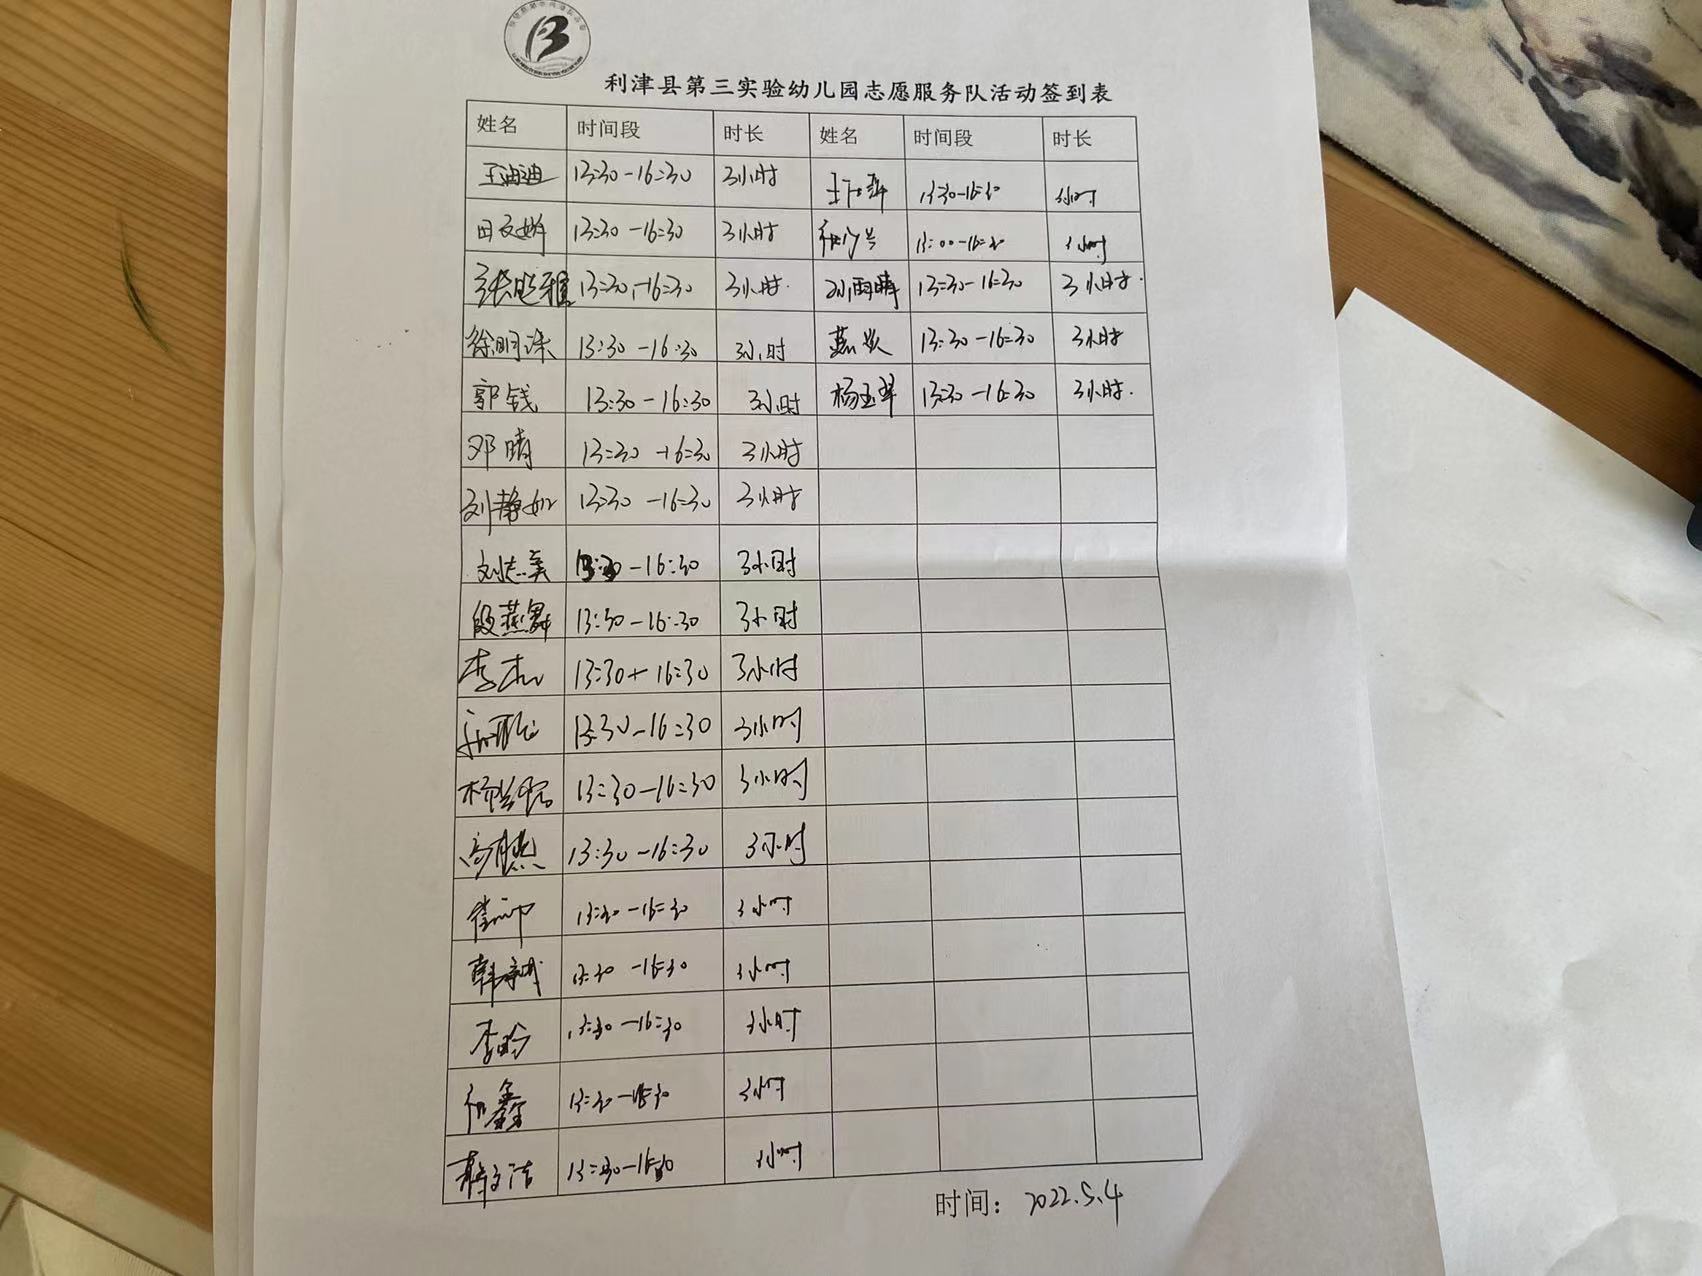 利津县第三实验幼儿园志愿服务队活动签到表
姓名 时间段 时长 姓名 时间段 时长
王迪迪 13:30-16:30 3小时 13:30-16:30 3小时
田文娟 13:30-16:30 3小时 13:00-16:30 3小时
张延雅 13:30-16:30 3小时. 孙雨晴 13:30-16:30 3小时.
徐明洙 13:30-16:30 3小时 燕岁 13:30-16:30 3小时
郭钱 13:30-16:30 3小时 杨玉翠 13:30-16:30 3小时.
邓晴 13:30-16:30 3小时
刘静如 13:30-16:30 3小时
刘志美 13:30-16:30 3小时
段燕舞 13:30-16:30 3小时
李杰 13:30-16:30 3小时
13:30-16:30 3小时
13:30-16:30 3小时
高腾 13:30-16:30 3小时
13:30-16:30 3小时
韩 13:30-16:30 3小时
李昤 13:30-16:30 3小时
鑫 13:30-16:30 3小时
13:30-16:30 3小时
时间：2022.5.4